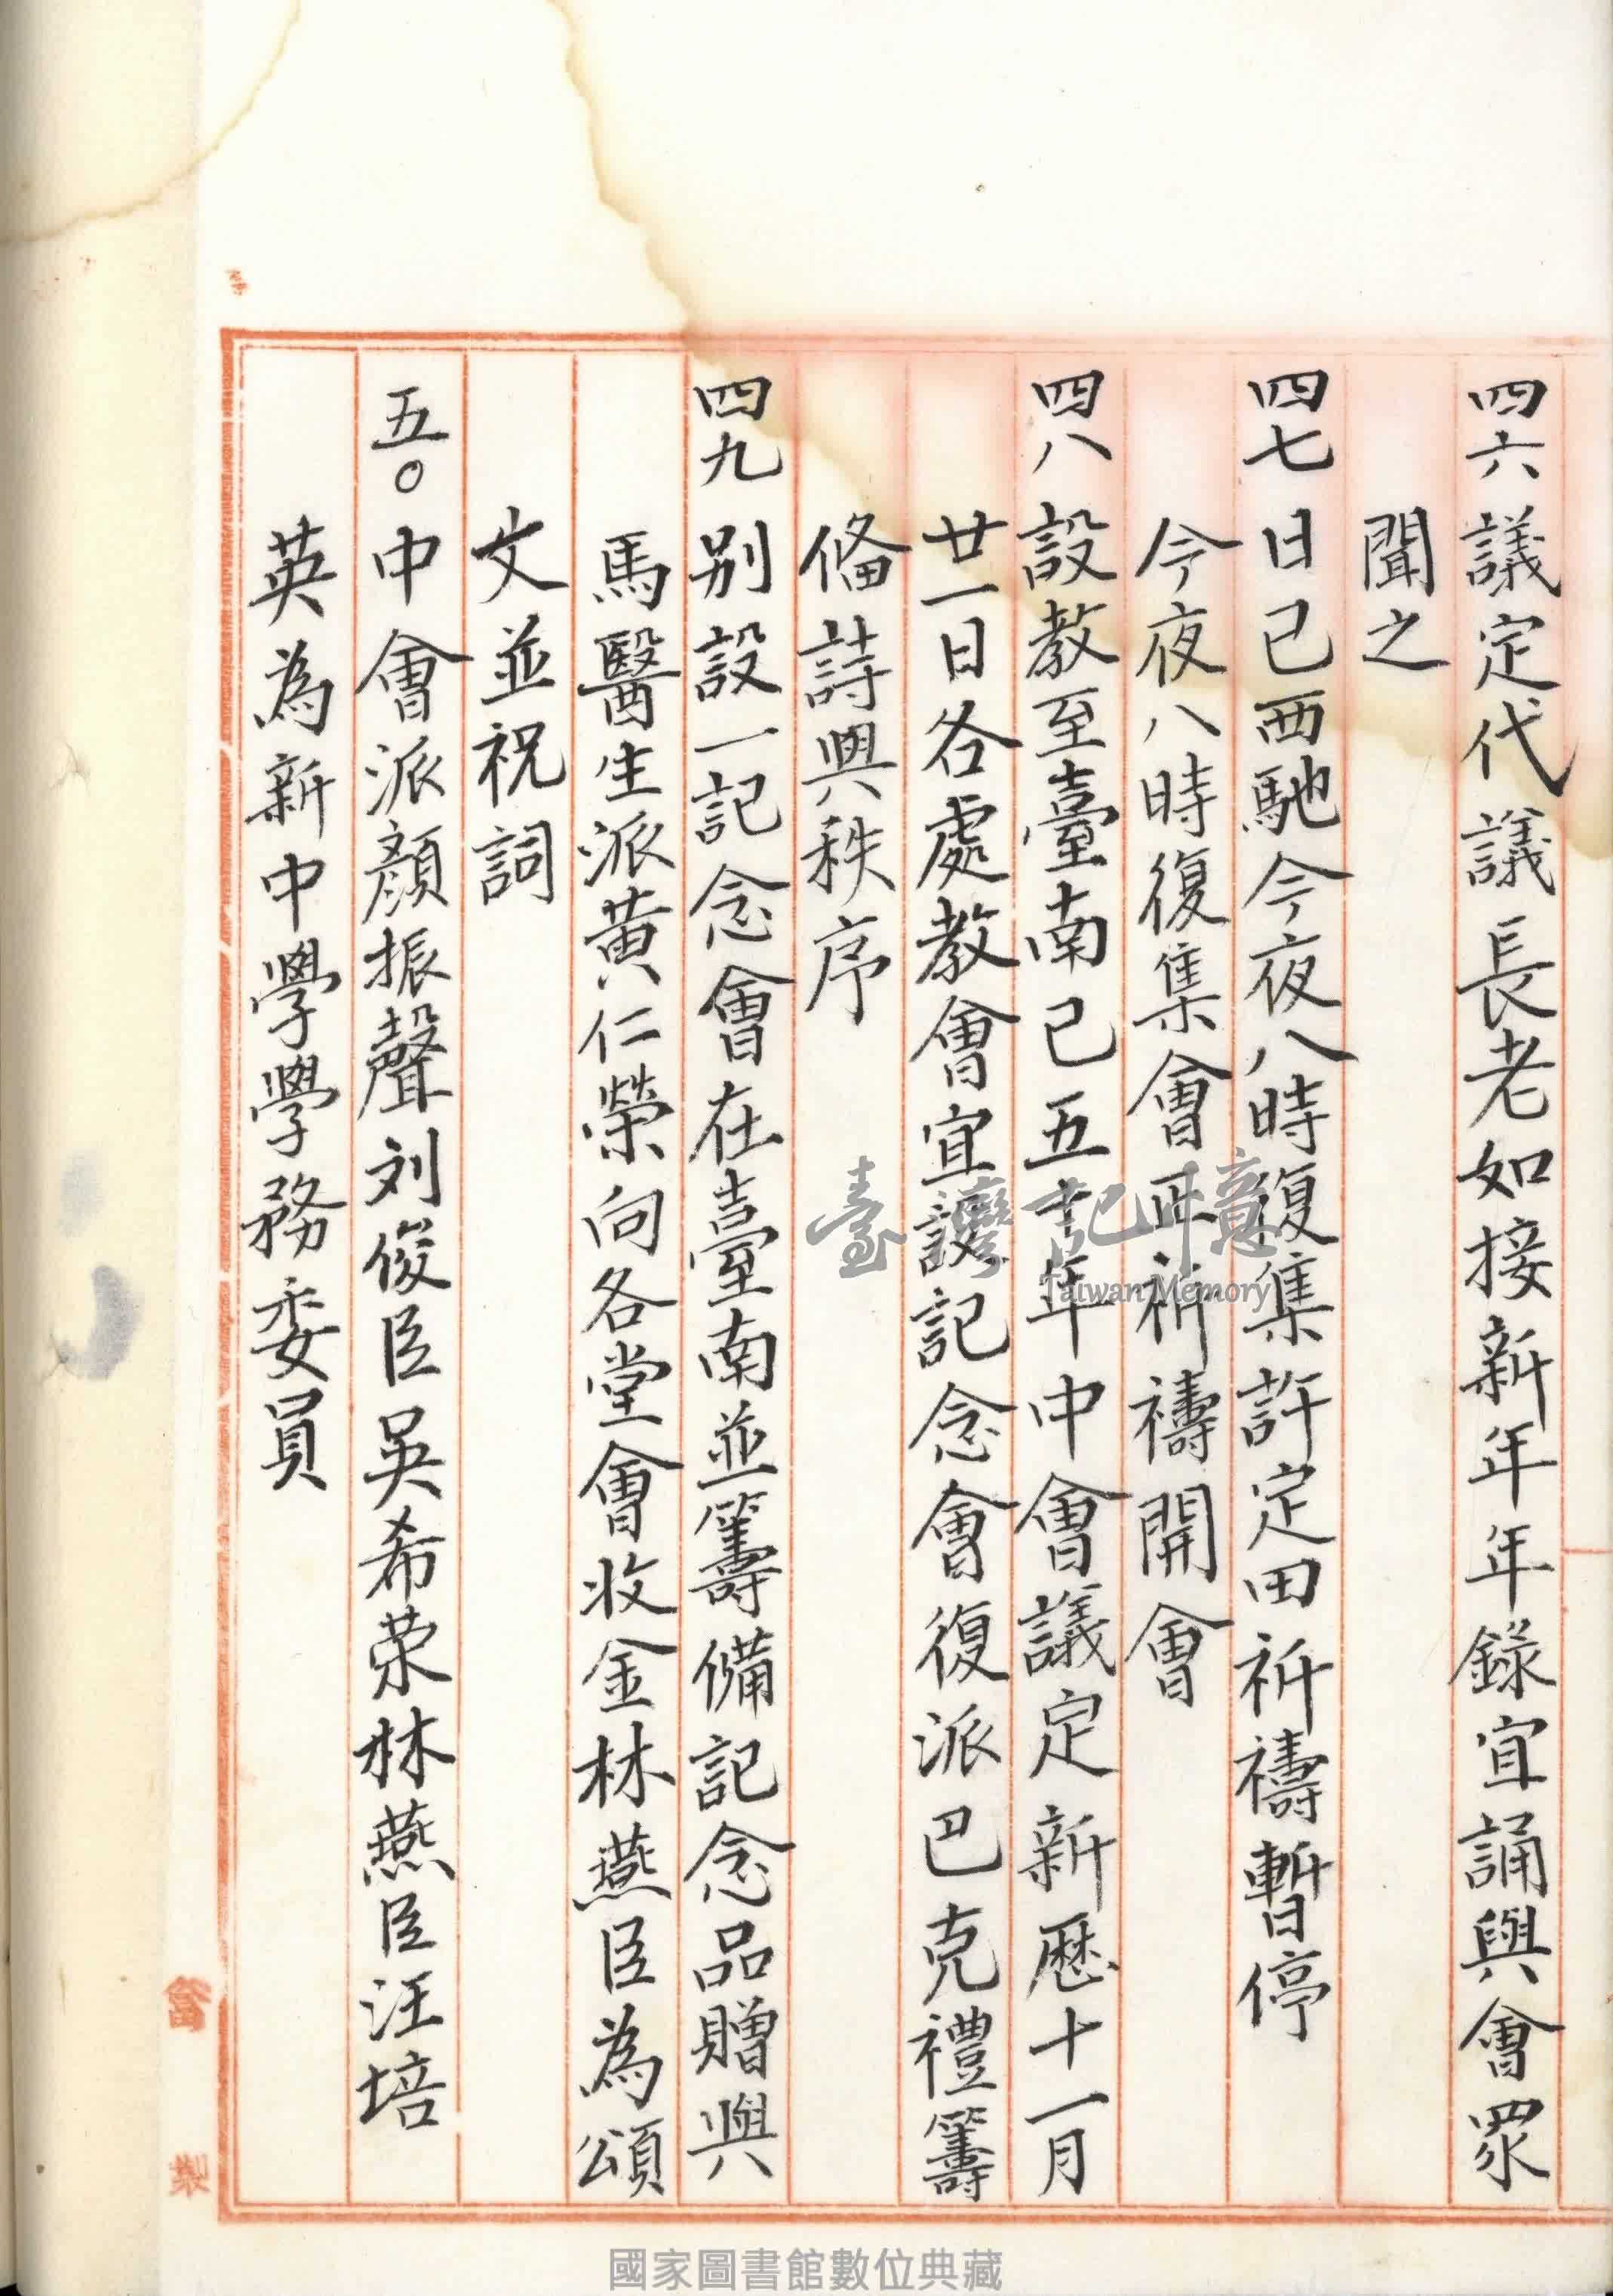 四六議定代議長老如接新年年錄宜誦與會眾
聞之
四七日已西馳今夜八時復集許定田祈禱暫停
今夜八時復集會 祈禱開會
四八設教至臺南已五十年中會議定新曆十一月
廿一日各處教會宜設記念會復派巴克禮籌
俻詩與秩序
四九別設一記念會在臺南並籌備記念品贈與
馬醫生派黃仁榮向各堂會收金林燕臣為頌
文並祝詞
五〇中會派顏振聲刘俊臣吳希荣林燕臣汪培
英為新中學學務委員
臺灣記憶
Taiwan Memory
國家圖書館數位典藏